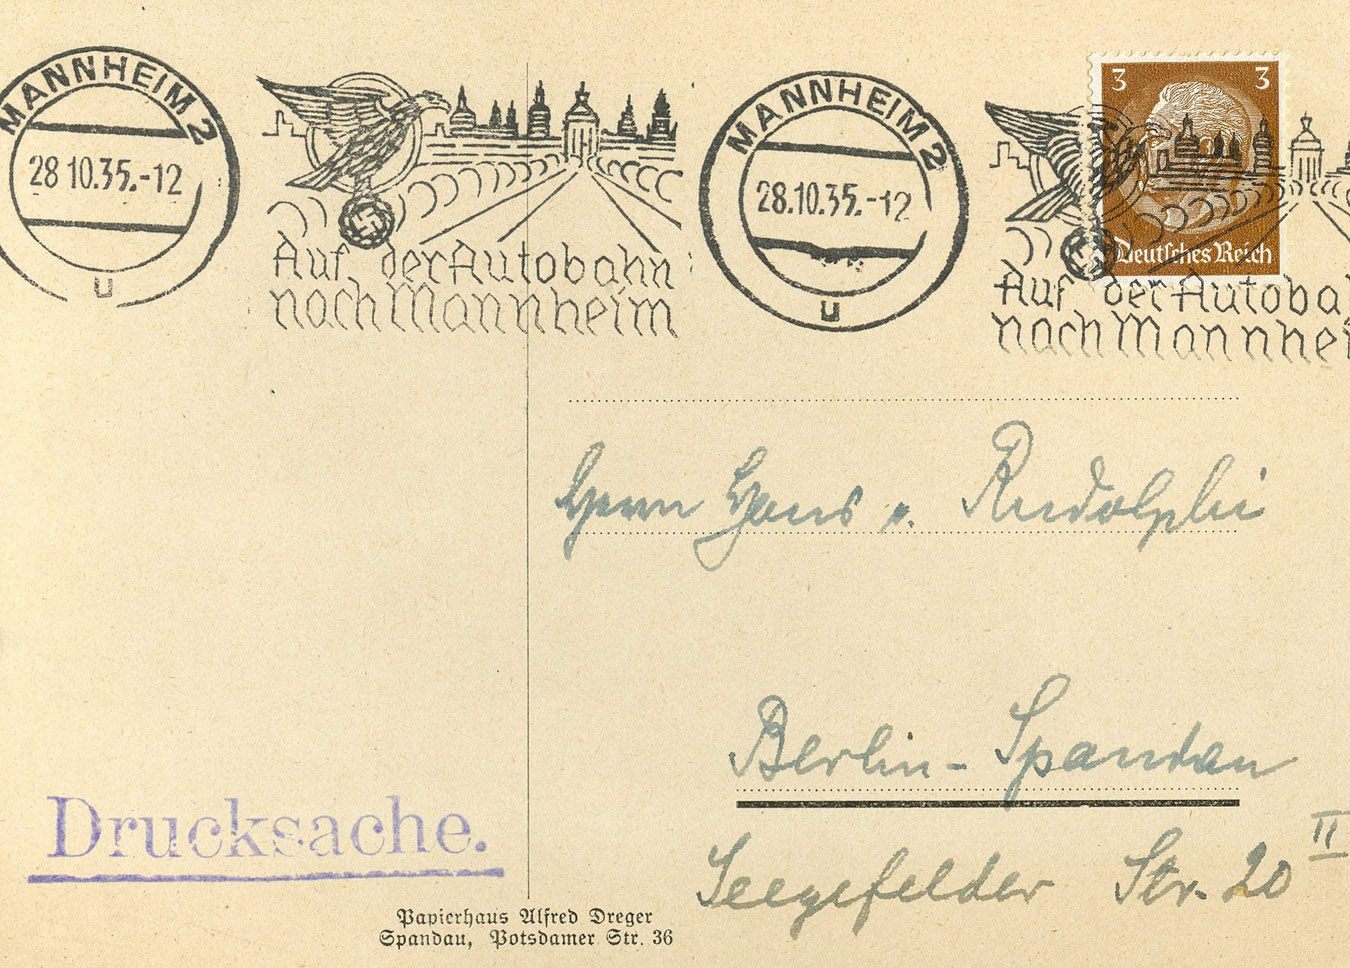 MANNHEIM 2
28.10.35.-12
u
Auf der Autobahn
nach Mannheim
MANNHEIM 2
28.10.35.-12
u
Auf der Autoba
nach Mannhei
3 3
Deutsches Reich
Herrn Hans v. Rudolphi
Berlin-Spandau
Seegefelder Str. 20 II
Drucksache.
Papierhaus Alfred Dreger
Spandau, Potsdamer Str. 36